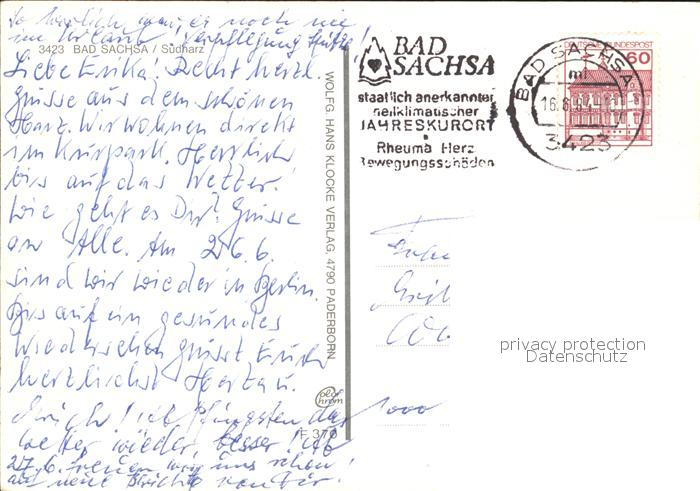 so herrlich war es noch nie
im Urlaub! Verpflegung Spitze!
3423 BAD SACHSA / Südharz
Liebe Erika! Recht herzl.
Grüsse aus dem schönen
Harz. Wir wohnen direkt
im Kurpark. Herrlich
bis auf das Wetter!
Wie geht es Dir? Grüsse
an Alle. Am 26.6.
sind wir wieder in Berlin.
Bis auf ein gesundes
Wiedersehen grüsst Euch
herzlichst Herta u.
ab Pfingsten das
Wetter wieder besser! Ab
27.6. freuen wir uns schon
auf neue Berichte von Dir.
WOLFG. HANS KLOCKE VERLAG, 4790 PADERBORN
F 370
BAD
SACHSA
staatlich anerkannter
heilklimatischer
JAHRESKURORT
Rheuma Herz
Bewegungsschäden
BAD SACHSA
ml
3423
DEUTSCHE BUNDESPOST
60
1000
privacy protection
Datenschutz